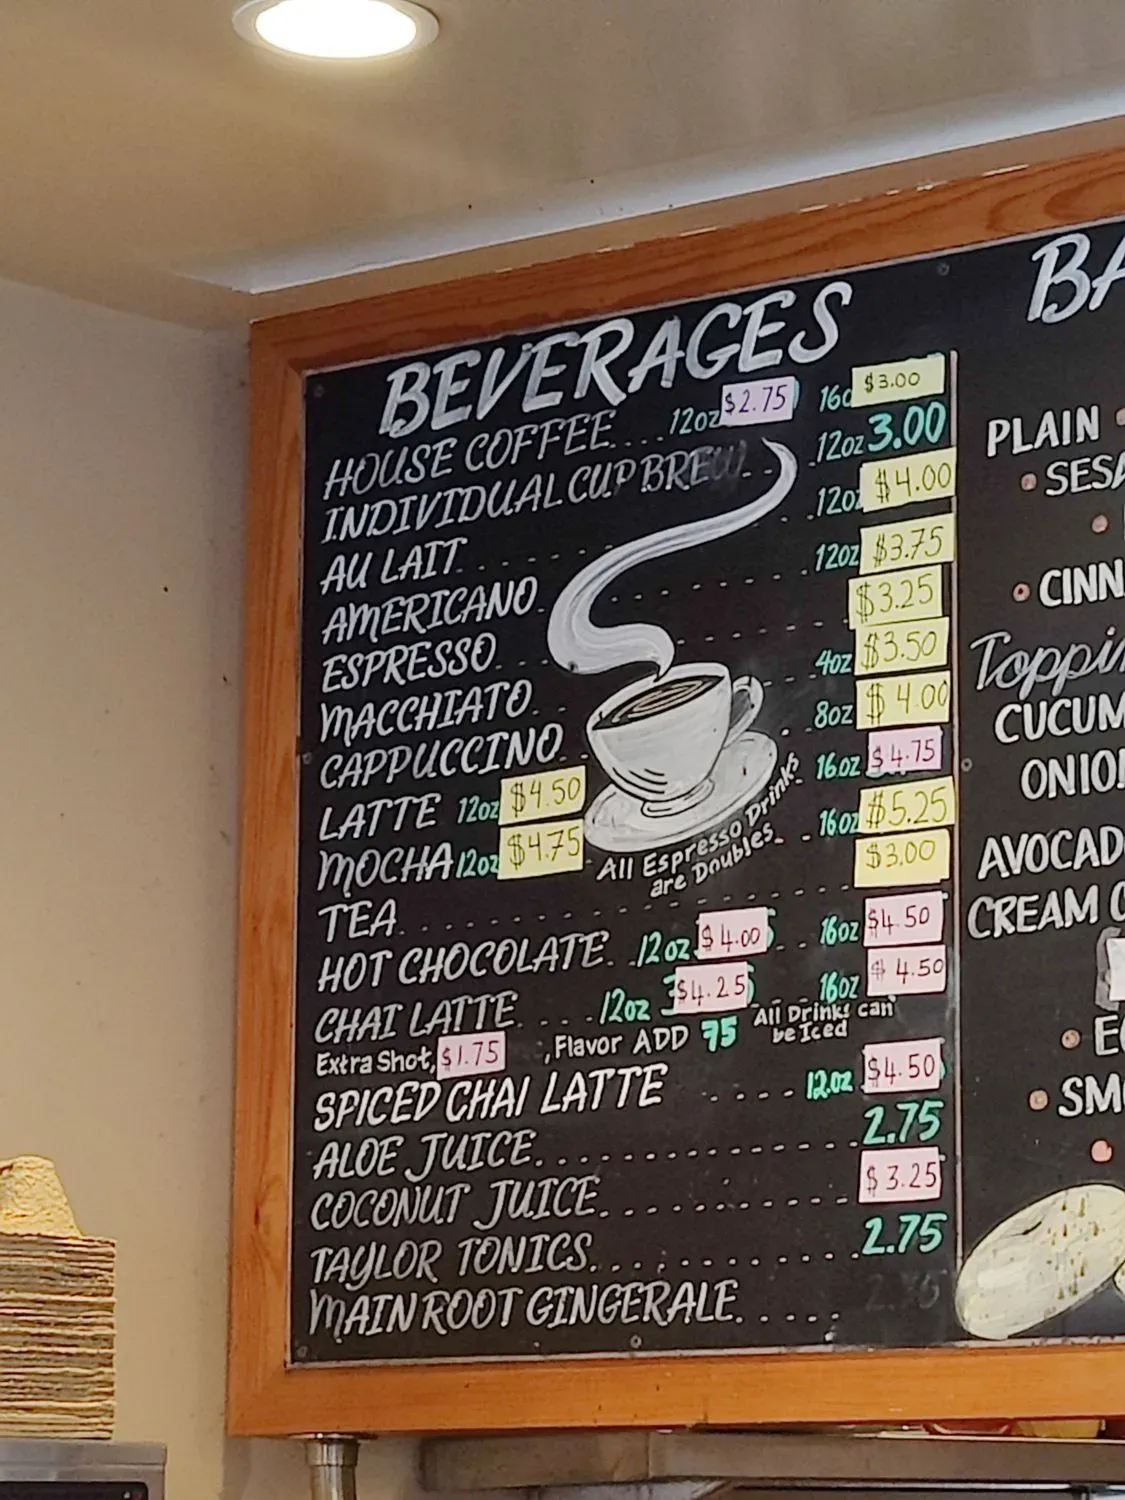 BEVERAGES
HOUSE COFFEE.... 12oz $2.75 16o $3.00
INDIVIDUAL CUP BREW 12oz 3.00
AU LAIT 12oz $4.00
AMERICANO 12oz $3.75
ESPRESSO $3.25
MACCHIATO 4oz $3.50
CAPPUCCINO 8oz $4.00
LATTE 12oz $4.50 16oz $4.75
MOCHA 12oz $4.75 16oz $5.25
All Espresso Drinks
are Doubles
TEA $3.00
HOT CHOCOLATE 12oz $4.00 16oz $4.50
CHAI LATTE 12oz $4.25 16oz $4.50
Extra Shot, $1.75 , Flavor ADD 75 All Drinks can
be Iced
SPICED CHAI LATTE 12oz $4.50
ALOE JUICE 2.75
COCONUT JUICE $3.25
TAYLOR TONICS 2.75
MAIN ROOT GINGERALE
BA
PLAIN
SESA
CINN
Toppin
CUCUM
ONIO
AVOCAD
CREAM C
E
SM